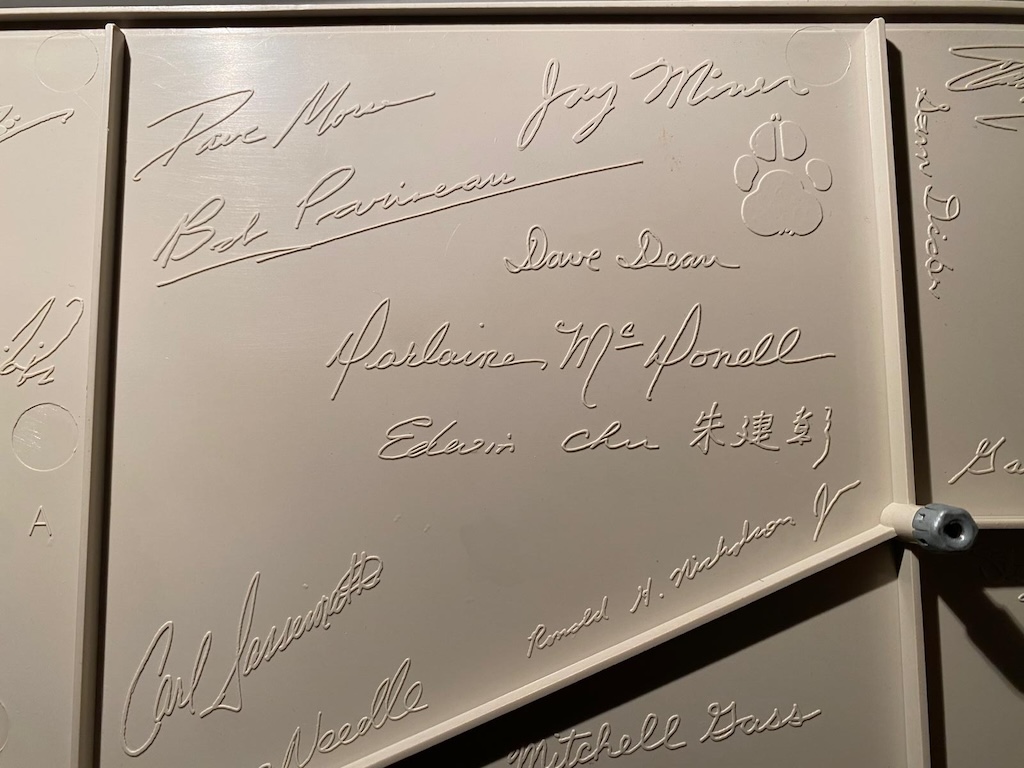 Dave Morse
Jay Miner
Bob Pariseau
Dave Dean
Parlaine McDonell
Edwin Chu 朱建彰
Ronald H. Nicholson Jr
Carl Sassenrath
Needle
Mitchell Gass
Ga
A